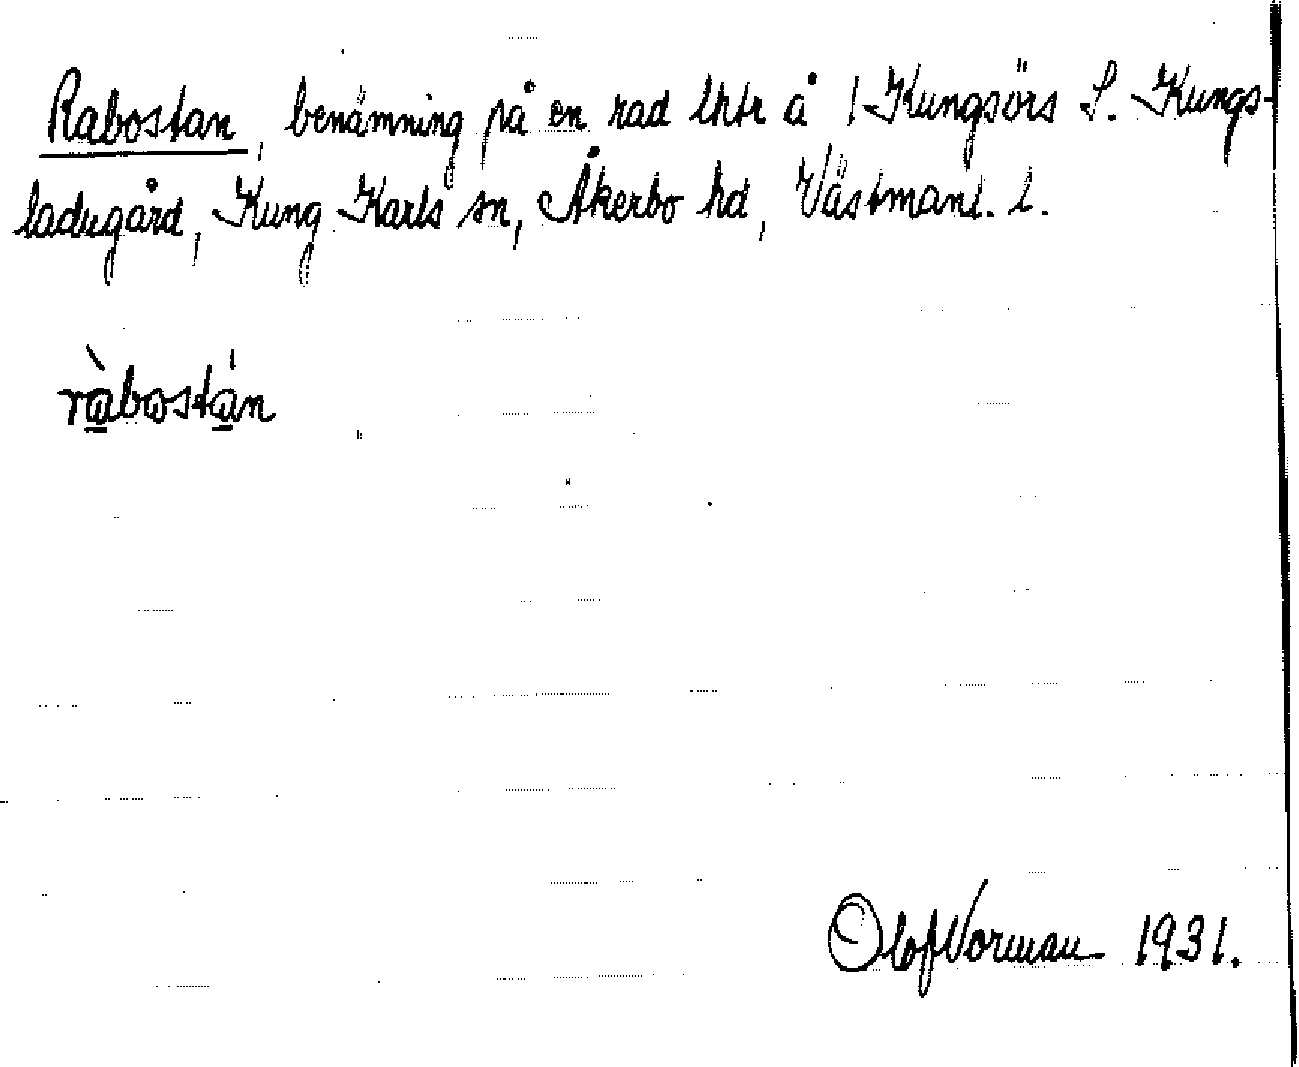 Rabostan, benämning på en rad lhtr å 1 Kungsörs S. Kungs-
ladugård, Kung Karls sn, Åkerbo hd, Västmanl. l.
ràbostán
Olof Norman 1931.